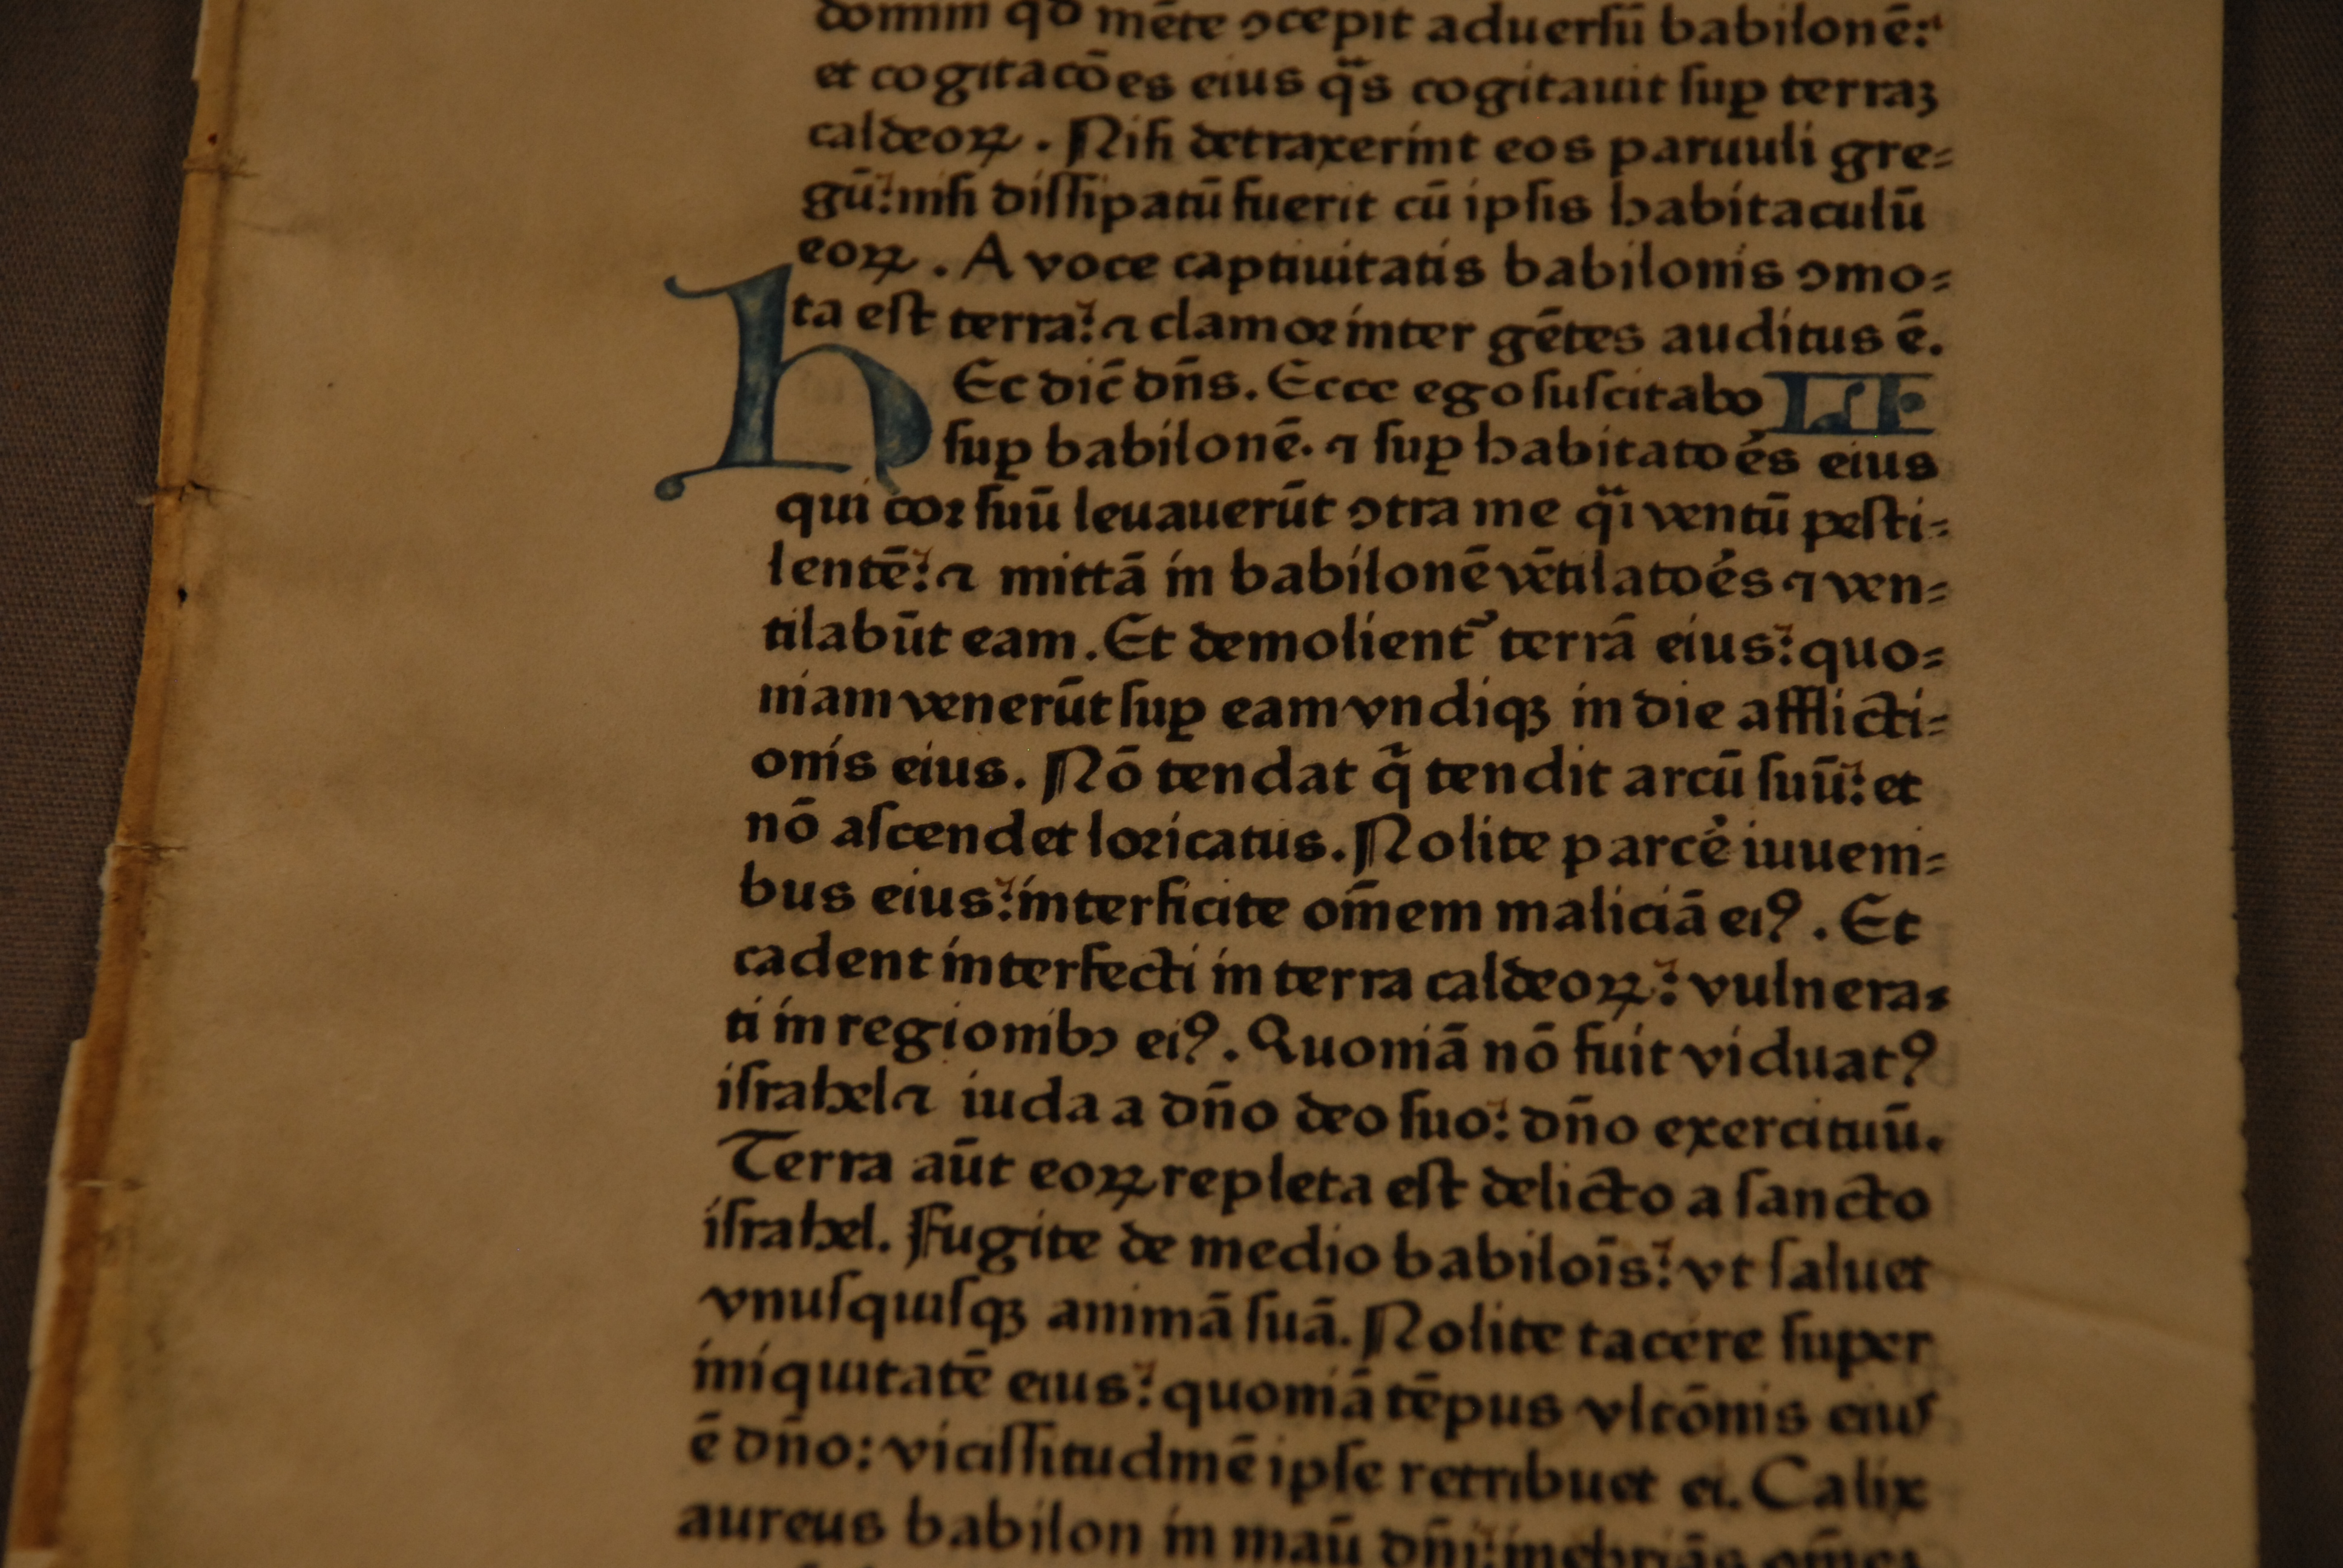 domini qđ mēte ꝯcepit aduerſū babilonē:
et cogitacōes eius q̈s cogitauit ſuꝑ terraʒ
caldeoꝝ. Niſi detraxerint eos paruuli gre⸗
gū: niſi diſſipatū fuerit cū ipſis habitaculū
eoꝝ. A voce captiuitatis babilonis ꝯmo⸗
ta eſt terra: ⁊ clamoꝛ inter gētes auditus ē.
hEc dic̄ dn̄s. Ecce ego ſuſcitabo LI
ſuꝑ babilonē. ⁊ ſuꝑ habitatoẻs eius
qui coꝛ ſuū leuauerūt ꝯtra me q̈i ventū peſti⸗
lentē: ⁊ mittā in babilonē vētilatoẻs ⁊ ven⸗
tilabūt eam. Et demolient᷑ terrā eius: quo⸗
niam venerūt ſuꝑ eam vndiqʒ in die afflicti⸗
onis eius. Nō tendat q̄ tendit arcū ſuū: et
nō aſcendet loꝛicatus. Nolite parcẻ iuueni⸗
bus eius: interficite om̄em maliciā eiꝰ. Et
cadent interfecti in terra caldeoꝝ: vulnera⸗
ti in regionibꝫ eiꝰ. Quoniā nō fuit viduatꝰ
iſrahel ⁊ iuda a dn̄o deo ſuo: dn̄o exercituū.
Terra aūt eoꝝ repleta eſt delicto a ſancto
iſrahel. Fugite de medio babiloīs: vt ſaluet
vnuſquiſqʒ animā ſuā. Nolite tacere ſuper
iniquitatē eius: quoniā tēpus vltōnis eius
ē dn̄o: viciſſitudinē ipſe retribuet ei. Calix
aureus babilon in manū dn̄i: inebriās om̄eʒ